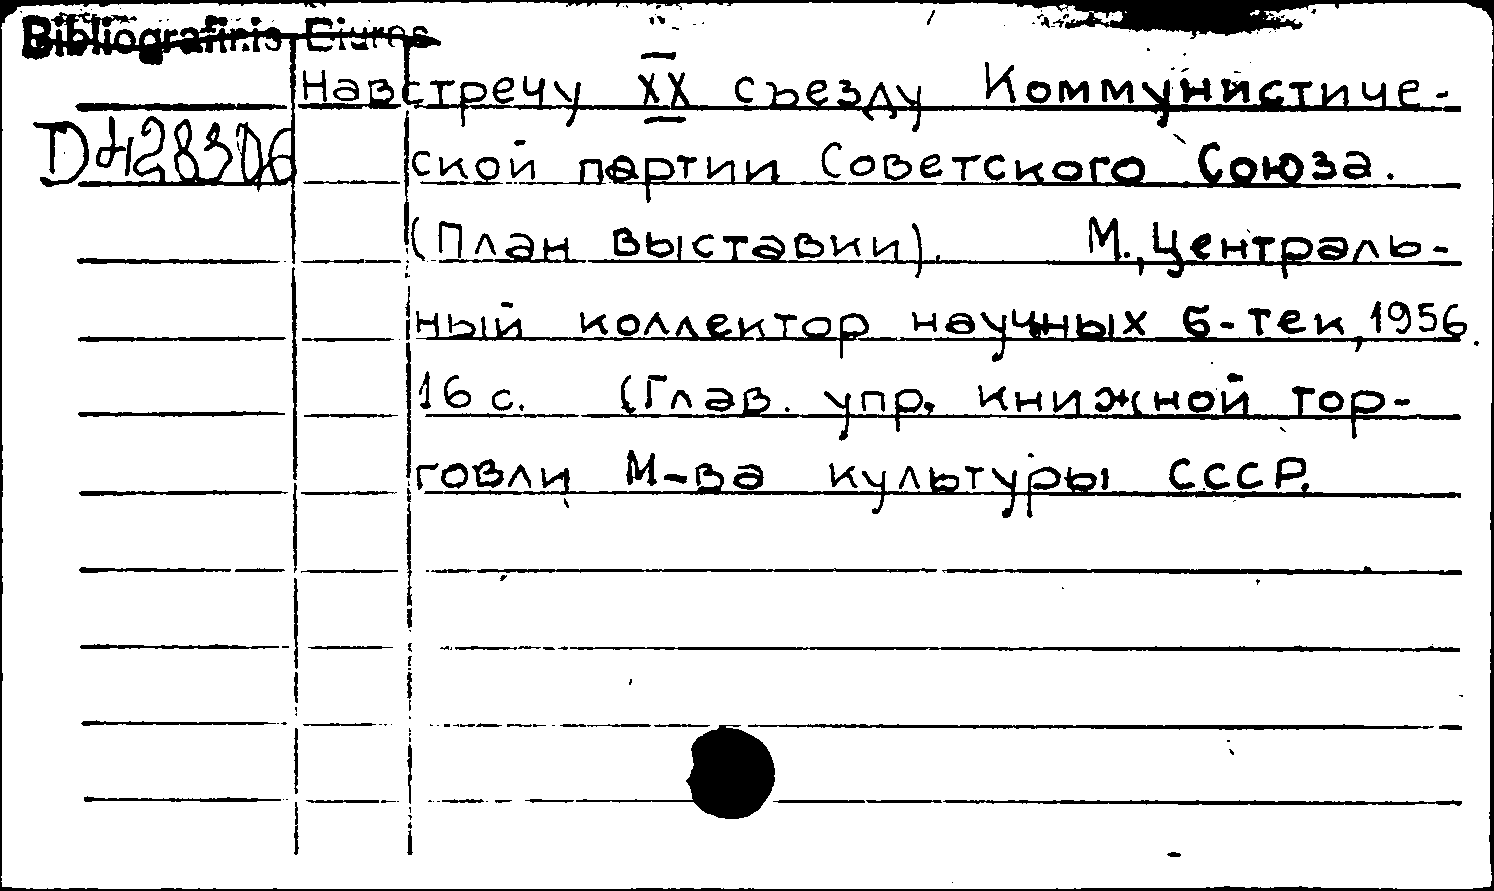 Bibliografinis Biuras
Навстречу XX съезду Коммунистиче-
D428306
ской партии Советского Союза.
(План выставки). М., Централь-
ный коллектор научных б-тек, 1956.
16 с. (Глав. упр. книжной тор-
говли М-ва культуры СССР.